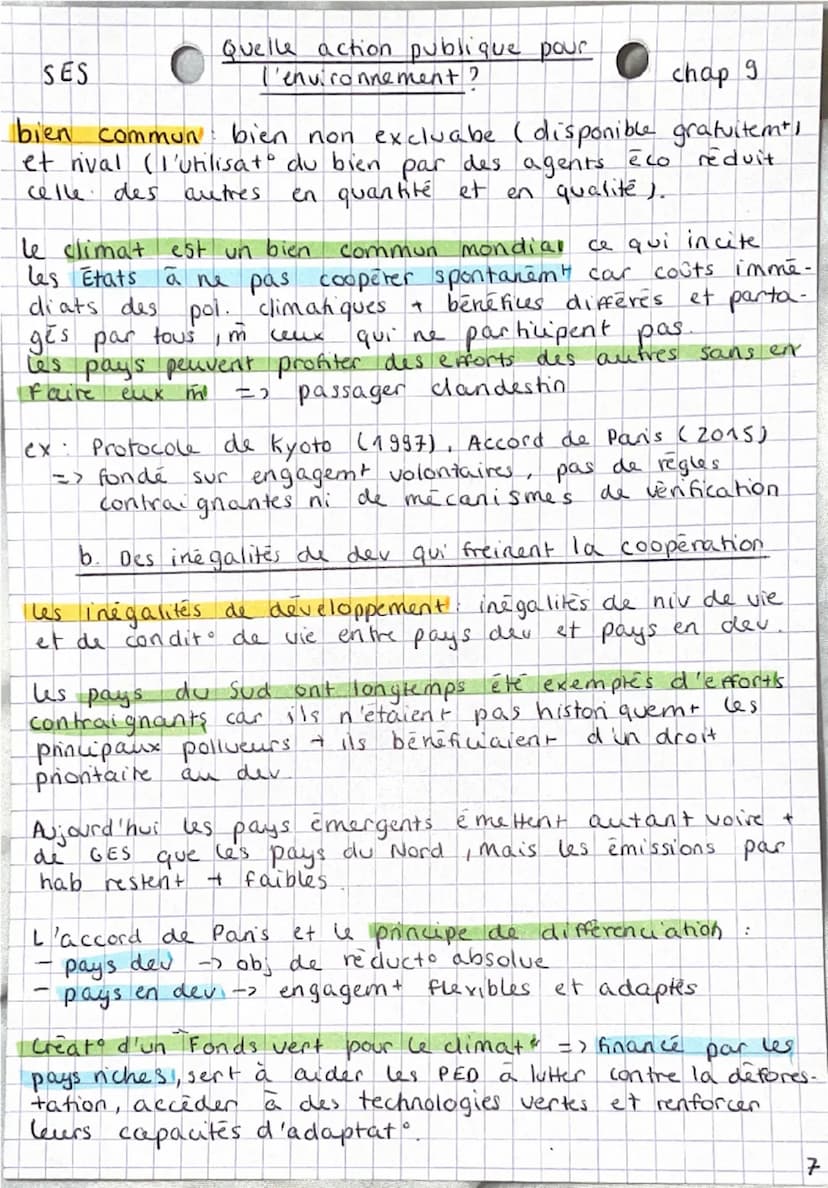 Quelle action publique pour
SES l'environnement ? chap 9
bien commun : bien non excluabe (disponible gratuitemt)
et rival (l'utilisat° du bien par des agents éco réduit
celle des autres en quantité et en qualité).
le climat est un bien commun mondial ce qui incite
les États à ne pas coopérer spontanémt car coûts immé-
diats des pol. climatiques + bénéfices différés et parta-
gés par tous, m̂ ceux qui ne participent pas.
les pays peuvent profiter des efforts des autres sans en
faire eux m̂ => passager clandestin
ex : Protocole de Kyoto (1997), Accord de Paris (2015)
=> fondé sur engagemt volontaires, pas de règles
contraignantes ni de mécanismes de vérification
b. Des inégalités de dev qui freinent la coopération
les inégalités de développement : inégalités de niv de vie
et de condit° de vie entre pays dev et pays en dev.
les pays du Sud ont longtemps été exemptés d'efforts
contraignants car ils n'étaient pas historiquemt les
principaux pollueurs + ils bénéficiaient d'un droit
prioritaire au dev.
Aujourd'hui les pays émergents émettent autant voire +
de GES que les pays du Nord, mais les émissions par
hab restent + faibles.
L'accord de Paris et le principe de différenciation :
- pays dev -> obj de réduct° absolue
- pays en dev -> engagemt flexibles et adaptés
Créat° d'un "Fonds vert pour le climat" => financé par les
pays riches, sert à aider les PED à lutter contre la défores-
tation, accéder à des technologies vertes et renforcer
leurs capacités d'adaptat°.
7